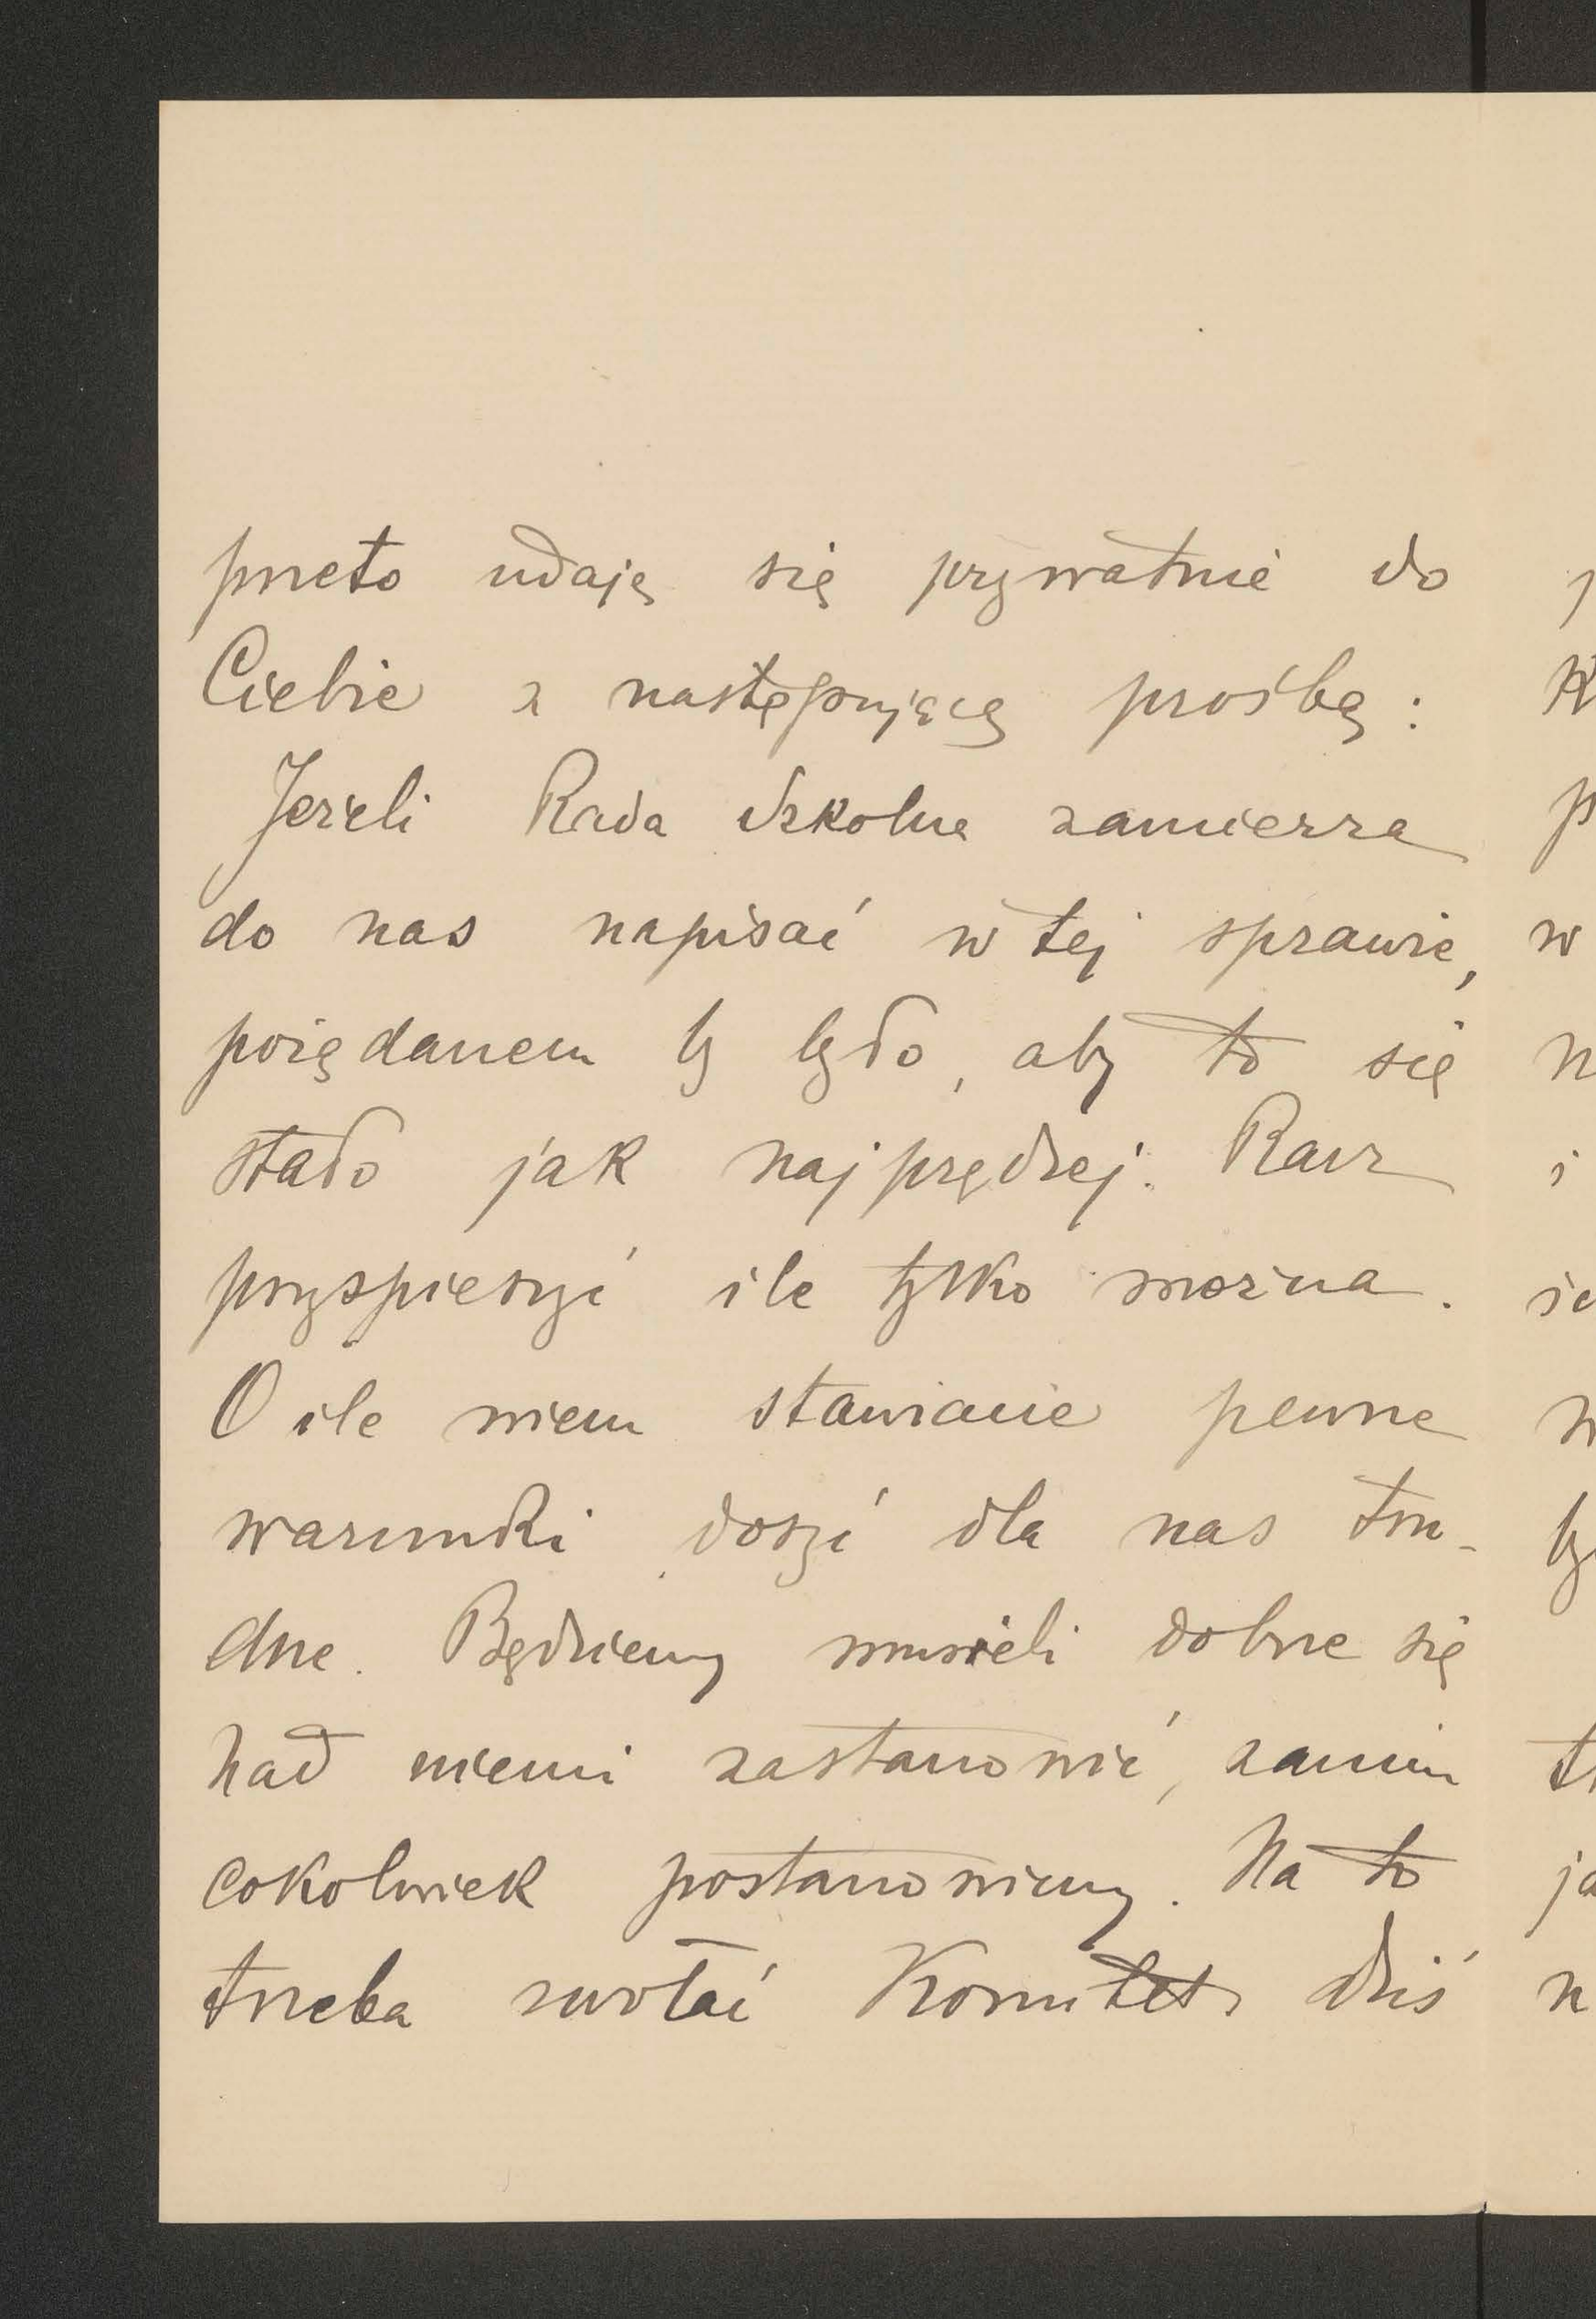 przeto udaję się prywatnie do
Ciebie z następującą prośbą:
Jeżeli Rada Szkolna zamierza
do nas napisać w tej sprawie,
pożądanem by było, aby to się
stało jak najprędzej. Racz
przyspieszyć ile tylko można.
O ile wiem stawiacie pewne
warunki dosyć dla nas tru-
dne. Będziemy musieli dobrze się
nad niemi zastanowić, zanim
cokolwiek postanowimy. Na to
trzeba zwołać Komitet, dziś